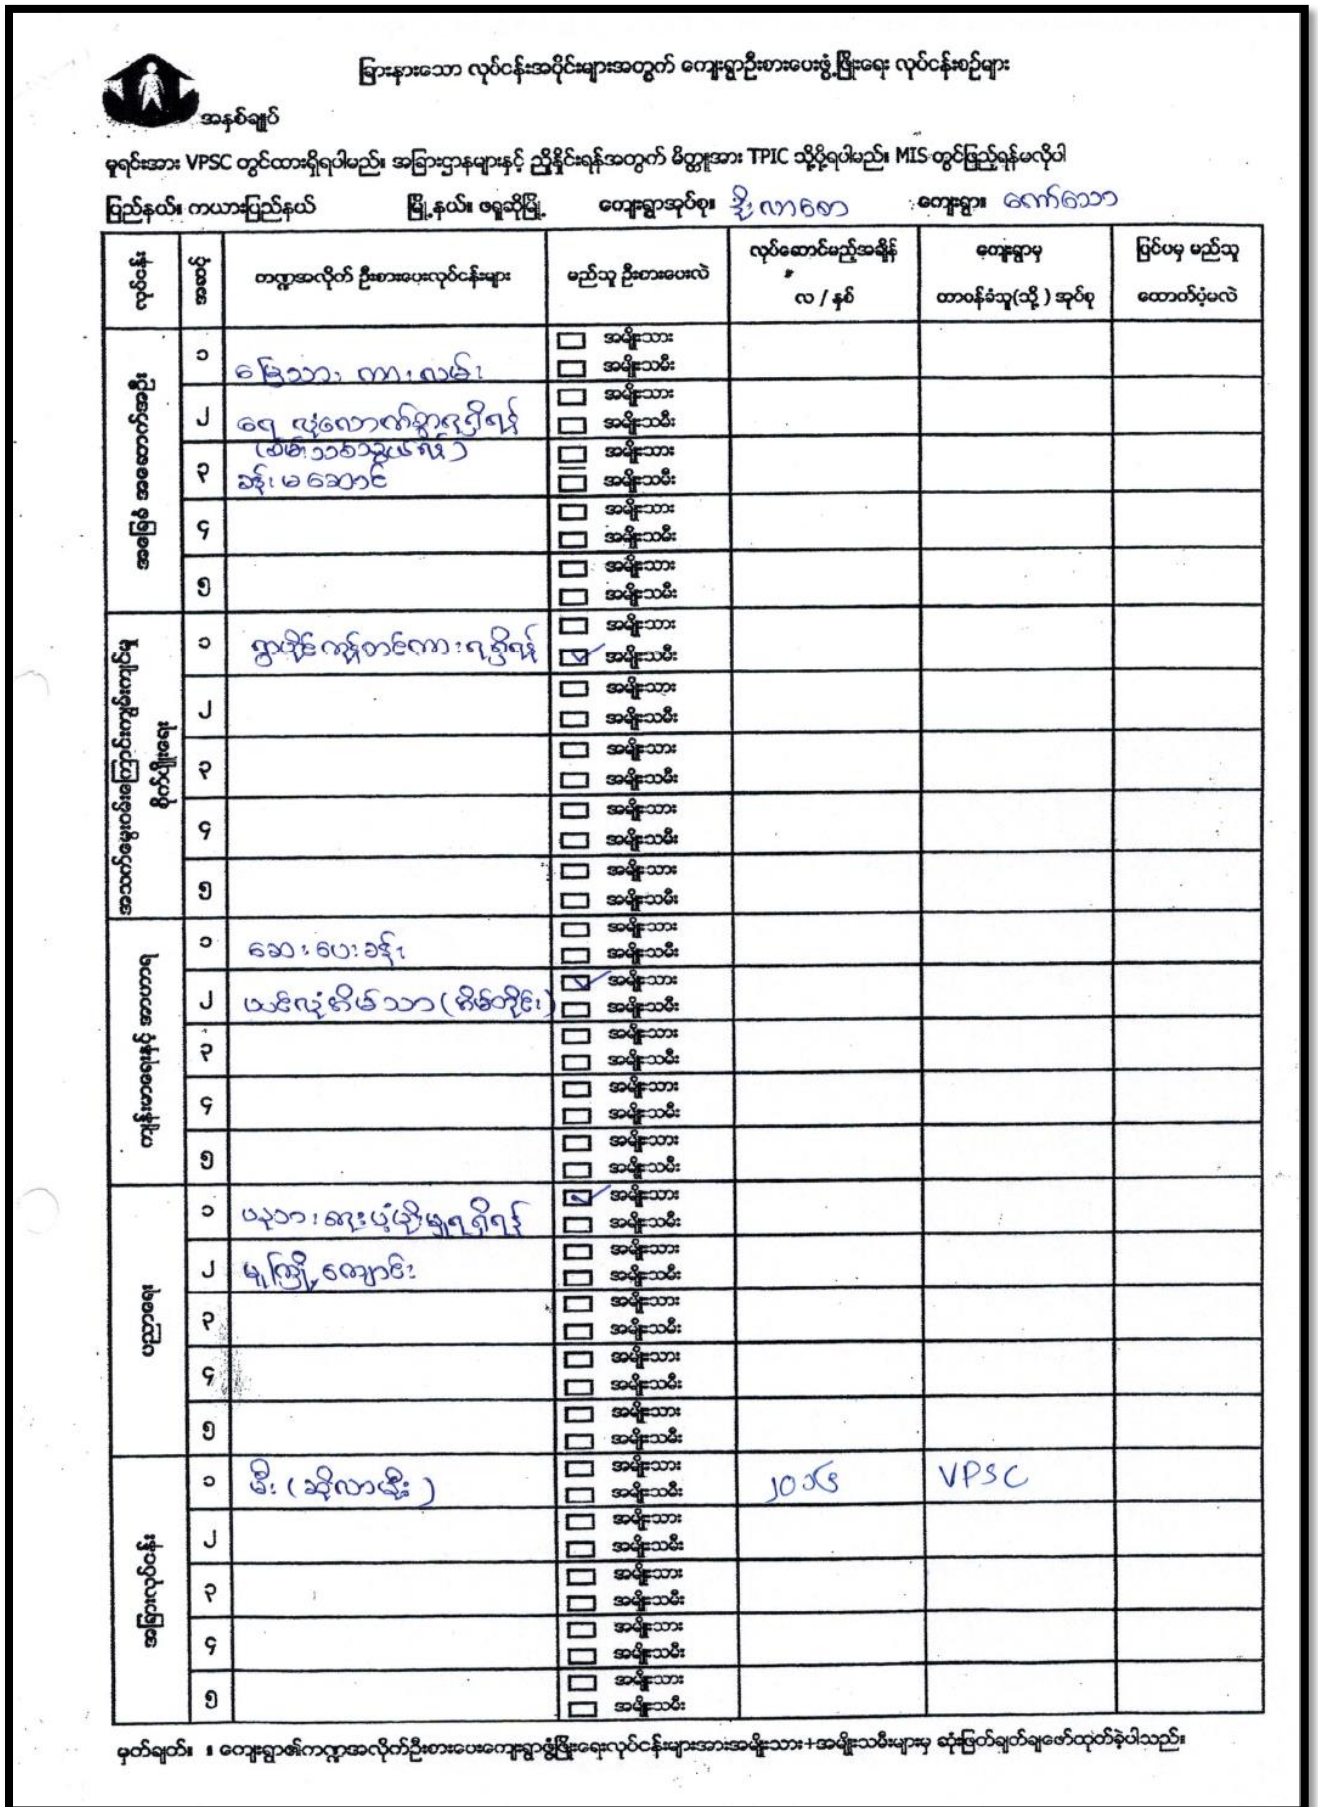 ခြားနားသော လုပ်ငန်းအပိုင်းများအတွက် ကျေးရွာဦးစားပေးဖွံ့ဖြိုးရေး လုပ်ငန်းစဉ်များ
အနှစ်ချုပ်
မူရင်းအား VPSC တွင်ထားရှိရပါမည်။ အခြားဌာနများနှင့် ညှိနှိုင်းရန်အတွက် မိတ္တူအား TPIC သို့ပို့ရပါမည်။ MIS တွင်ဖြည့်ရန်မလိုပါ
ပြည်နယ်။ ကယားပြည်နယ် မြို့နယ်။ ဖရူဆိုမြို့ ကျေးရွာအုပ်စု။ ဒိုးလာစော ကျေးရွာ။ ကော်သော
လုပ်ငန်း အဆင့် ကဏ္ဍအလိုက် ဦးစားပေးလုပ်ငန်းများ မည်သူ ဦးစားပေးလဲ လုပ်ဆောင်မည့်အချိန် လ / နှစ် ကျေးရွာမှ တာဝန်ခံသူ(သို့) အုပ်စု ပြင်ပမှ မည်သူ ထောက်ပံ့မလဲ
အခြေခံ အဆောက်အဦး
၁ မြေသား ကားလမ်း အမျိုးသား
အမျိုးသမီး
၂ ရေ လုံလောက်စွာရရှိရန် အမျိုးသား
အမျိုးသမီး
၃ အမျိုးသား
ခန်းမဆောင် အမျိုးသမီး
၄ အမျိုးသား
အမျိုးသမီး
၅ အမျိုးသား
အမျိုးသမီး
အသက်မွေးဝမ်းကြောင်းကျွမ်းကျင်မှု
စိုက်ပျိုးရေး
၁ ရွာပိုင်ကုန်တင်ကားရရှိရန် အမျိုးသား
အမျိုးသမီး
၂ အမျိုးသား
အမျိုးသမီး
၃ အမျိုးသား
အမျိုးသမီး
၄ အမျိုးသား
အမျိုးသမီး
၅ အမျိုးသား
အမျိုးသမီး
ကျန်းမာရေးနှင့် အာဟာရ
၁ ဆေးပေးခန်း အမျိုးသား
အမျိုးသမီး
၂ ယင်လုံအိမ်သာ(အိမ်တိုင်း) အမျိုးသား
အမျိုးသမီး
၃ အမျိုးသား
အမျိုးသမီး
၄ အမျိုးသား
အမျိုးသမီး
၅ အမျိုးသား
အမျိုးသမီး
ပညာရေး
၁ အမျိုးသား
အမျိုးသမီး
၂ မူကြိုကျောင်း အမျိုးသား
အမျိုးသမီး
၃ အမျိုးသား
အမျိုးသမီး
၄ အမျိုးသား
အမျိုးသမီး
၅ အမျိုးသား
အမျိုးသမီး
အခြားလုပ်ငန်း
၁ မီး (ဆိုလာမီး) အမျိုးသား VPSC
အမျိုးသမီး
၂ အမျိုးသား
အမျိုးသမီး
၃ အမျိုးသား
အမျိုးသမီး
၄ အမျိုးသား
အမျိုးသမီး
၅ အမျိုးသား
အမျိုးသမီး
မှတ်ချက်။ ။ ကျေးရွာ၏ကဏ္ဍအလိုက်ဦးစားပေးကျေးရွာဖွံ့ဖြိုးရေးလုပ်ငန်းများအားအမျိုးသား+အမျိုးသမီးများမှ ဆုံးဖြတ်ချက်ချဖော်ထုတ်ခဲ့ပါသည်။